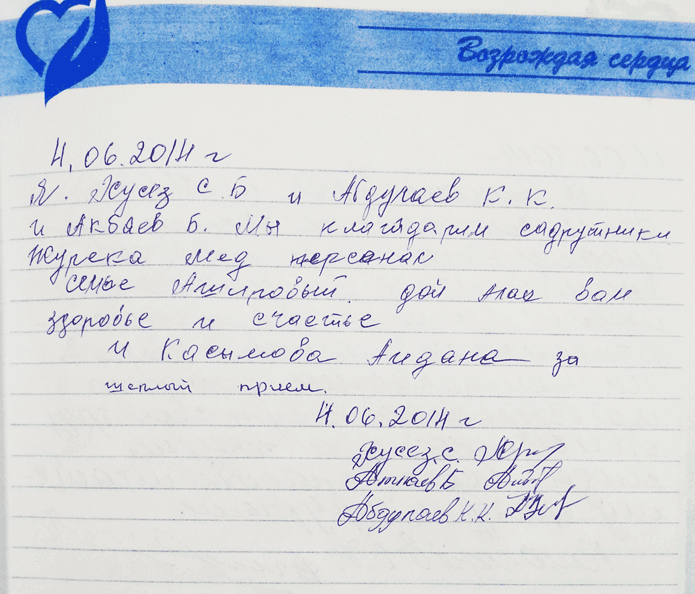 Возрождая сердца
4.06.2014 г
Я. Хусез С. Б и Абдулаев К. К.
и Акбаев Б. Мы клагадарим садрутники
Журека мед персонал
семье Ашировый. дой алах вам
здоровье и счастье
и Касымова Аидана за
теплый прием.
4.06.2014 г
Хусез. С.
Б
Абдулаев К. К.